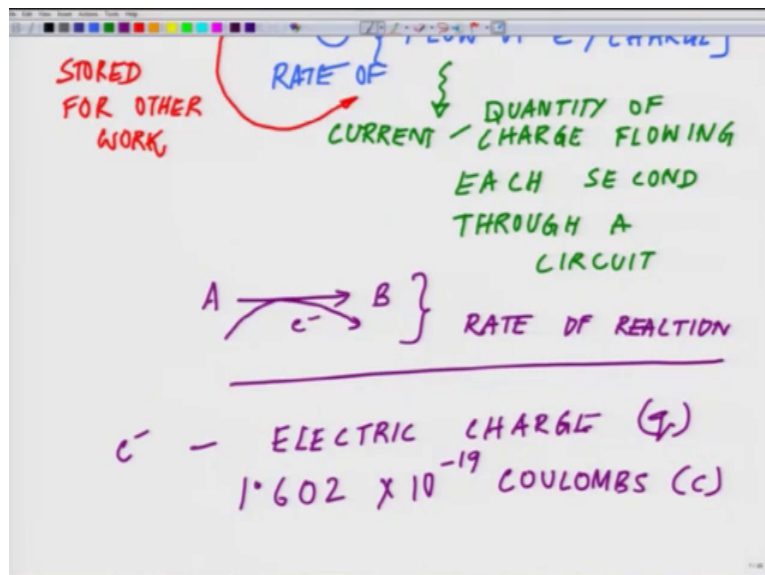 FLOW OF e⁻/CHARGE]
STORED
FOR OTHER
WORK
RATE OF
CURRENT - QUANTITY OF
CHARGE FLOWING
EACH SECOND
THROUGH A
CIRCUIT
A → B } RATE OF REALTION
e⁻
e⁻ - ELECTRIC CHARGE (q)
1.602 x 10⁻¹⁹ COULOMBS (C)